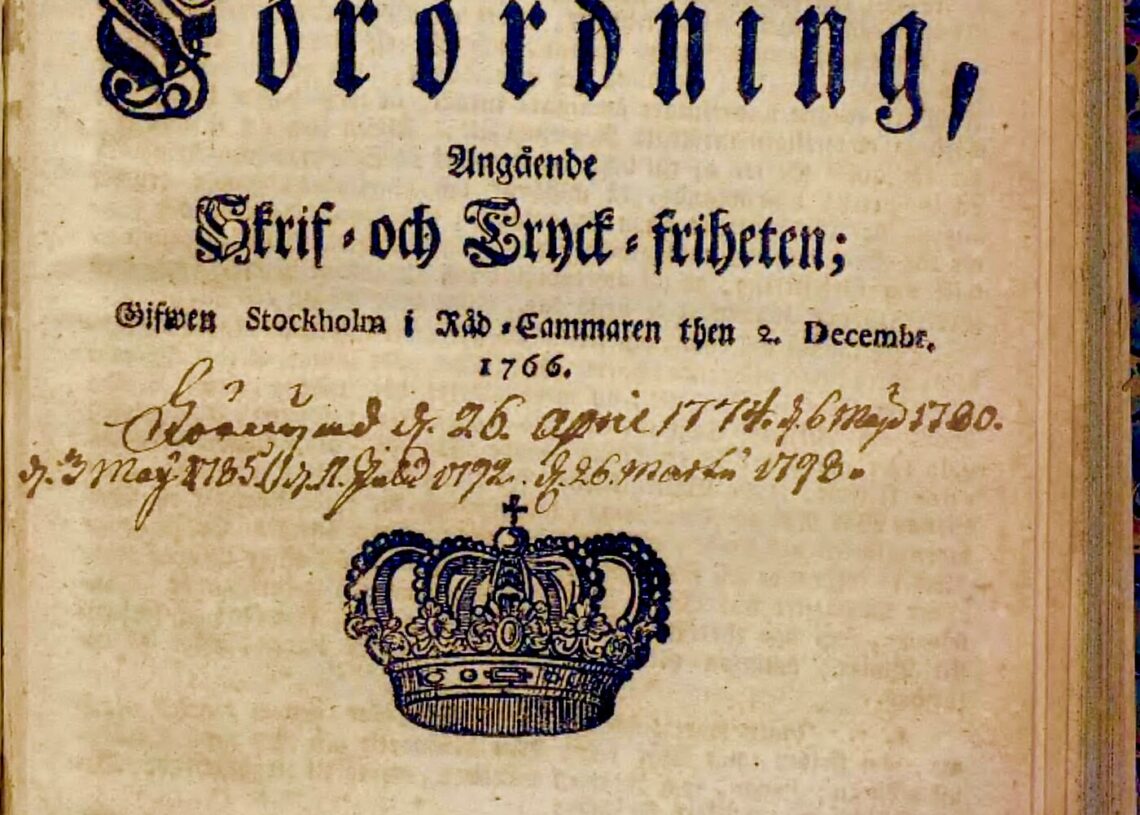 Förordning,
Angående
Skrif-och Tryck-friheten;
Gifwen Stockholm i Råd-Cammaren then 2. Decembr.
1766.
d. 26. April 1774. d. 6 Maji 1780.
d. 3 May 1785 d. 11. 1792. d. 26 Martii 1798.